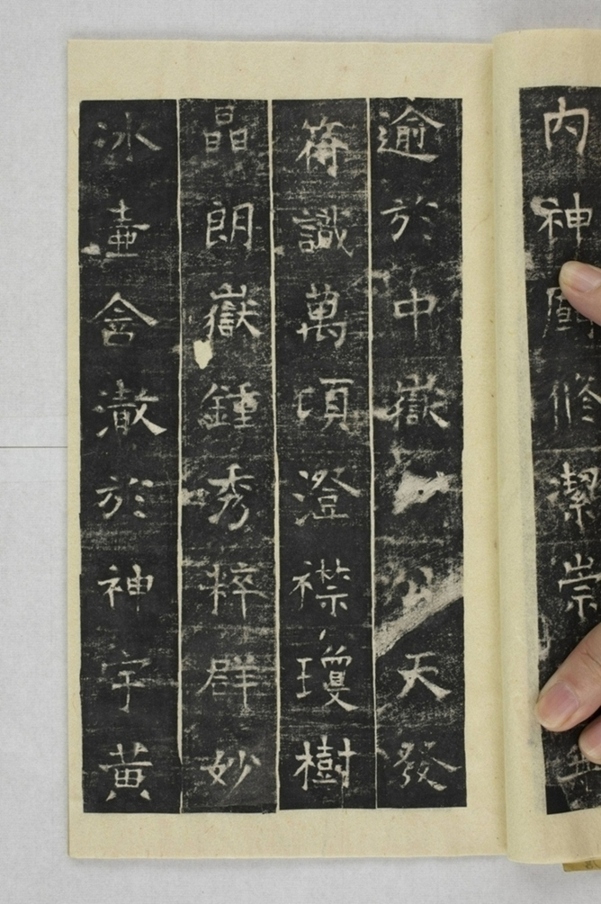 内神府修潔崇
逾於中嶽公天發
符識萬頃澄襟瓊樹
晶朗嶽鍾秀粹群妙
冰壺含澈於神宇黄